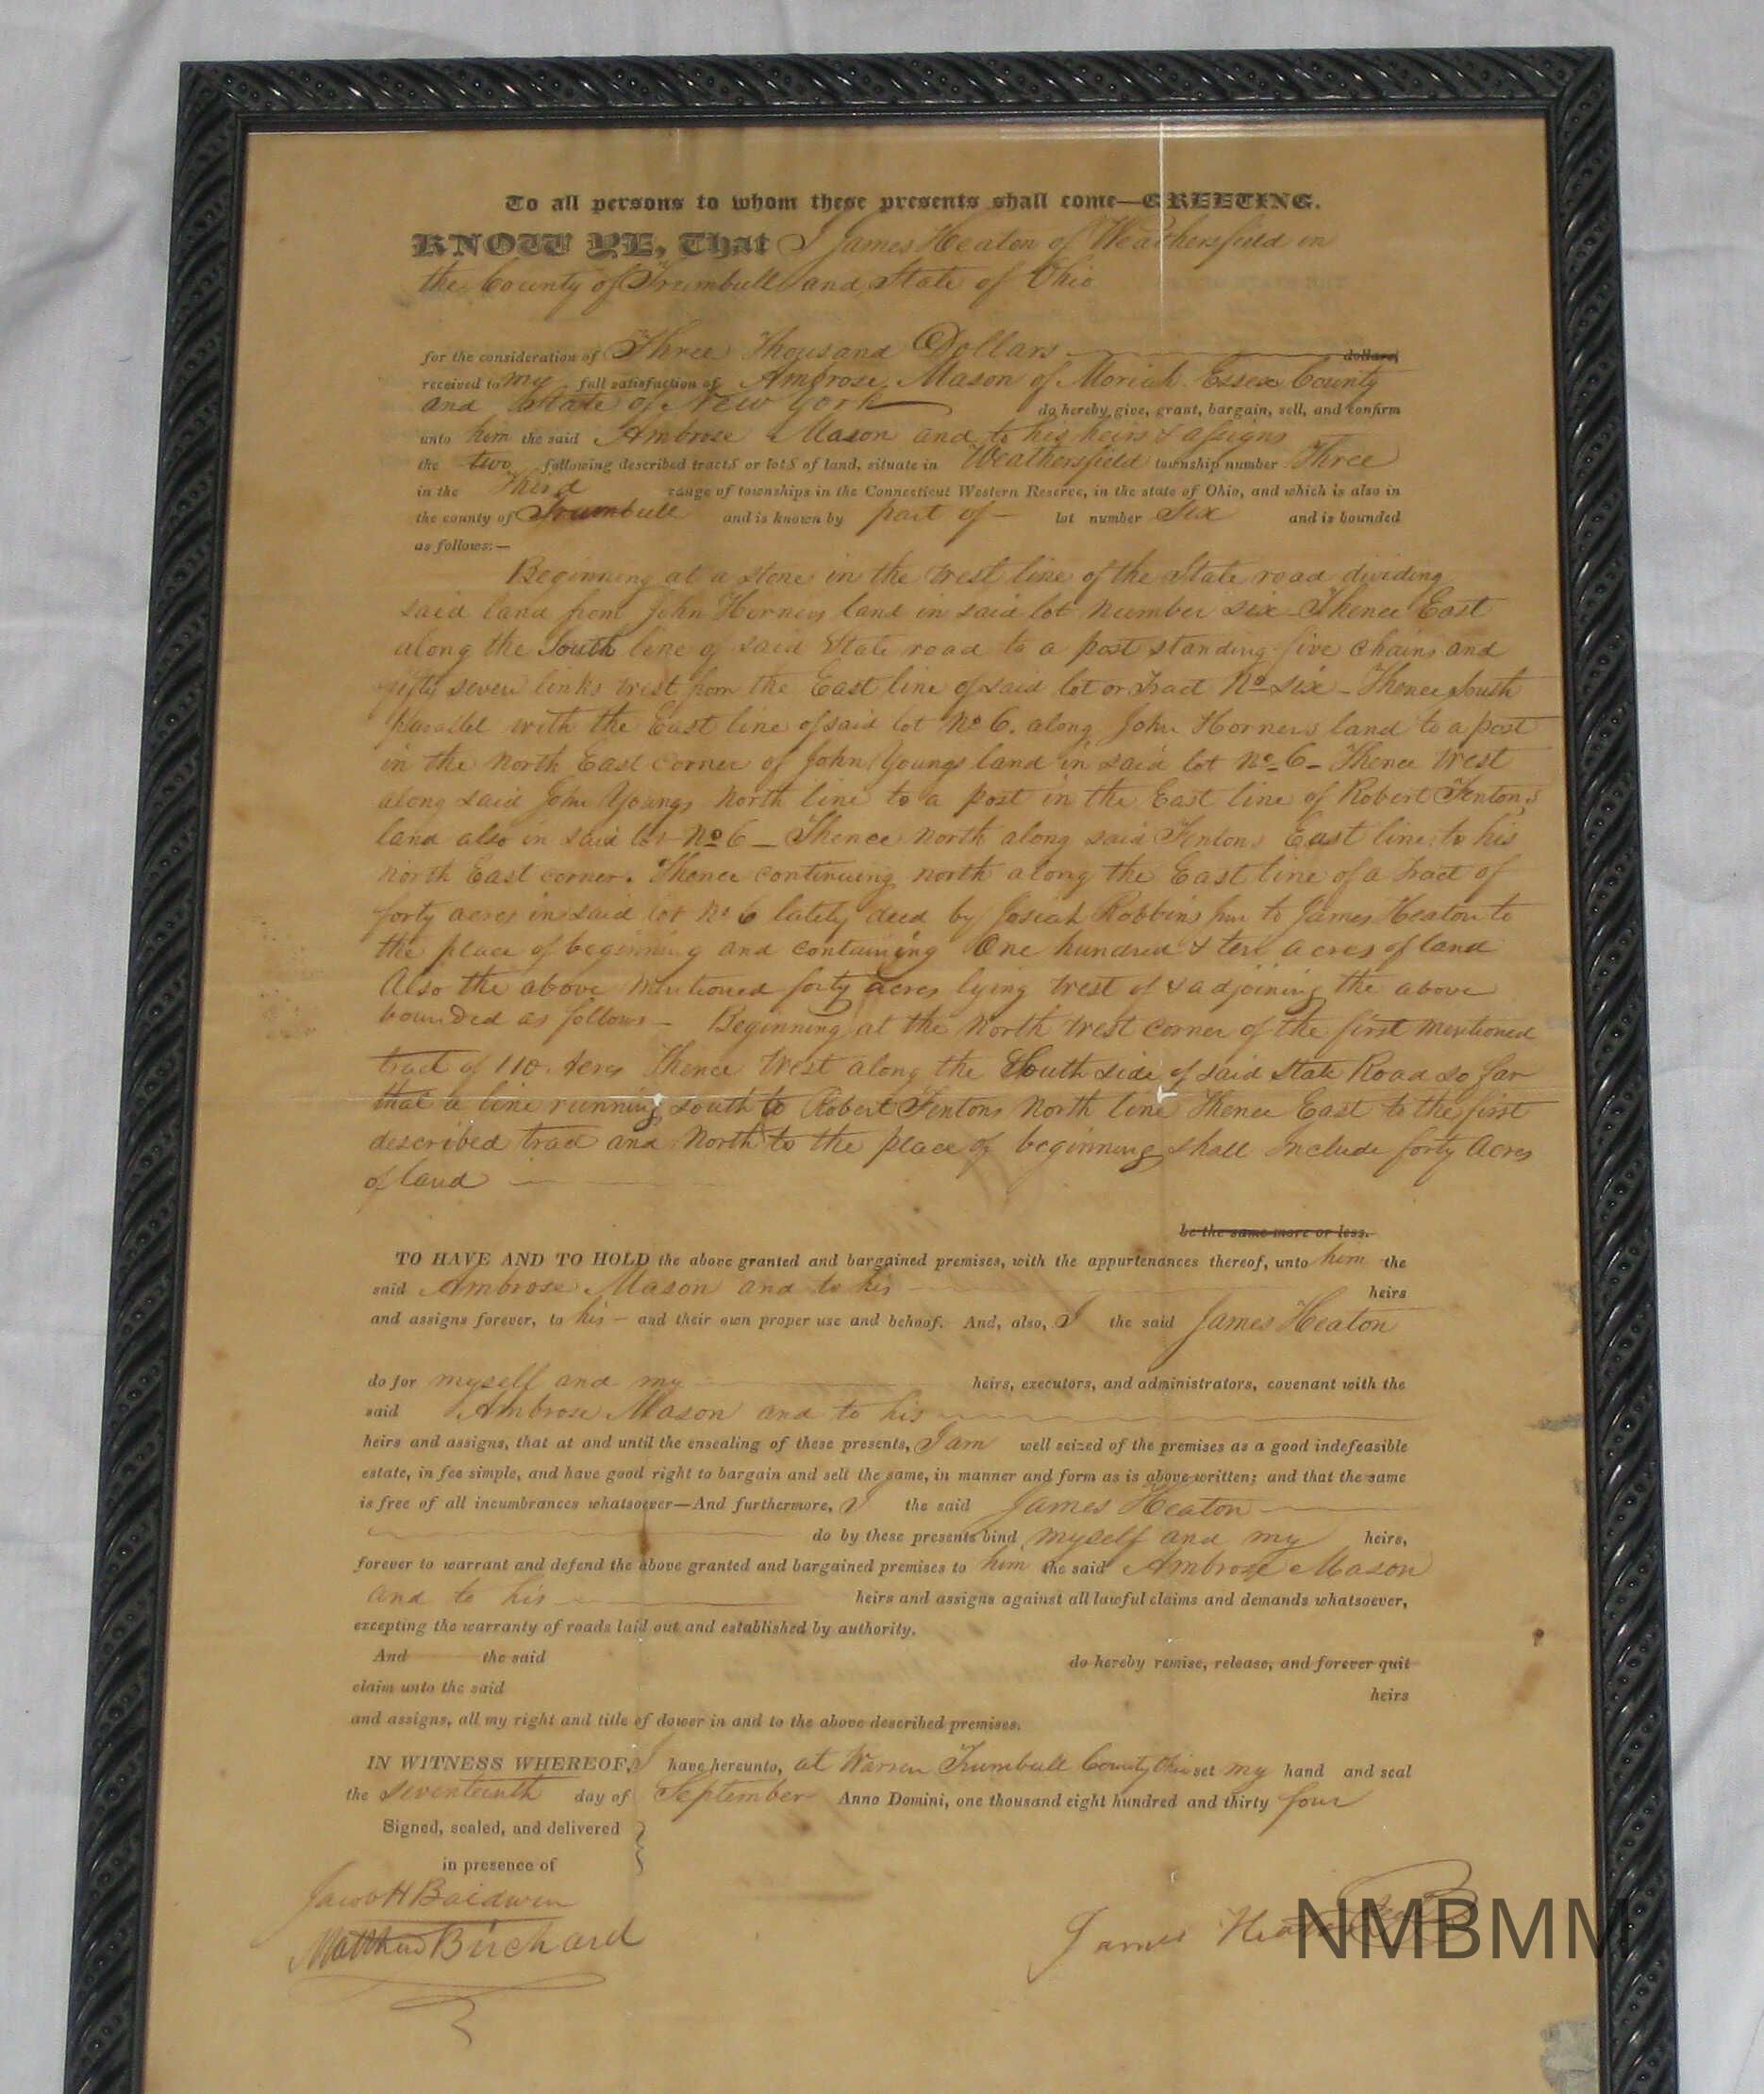 To all persons to whom these presents shall come—GREETING.
KNOW YE, That I James Heaton of Weathersfield in
the County of Trumbull and State of Ohio
for the consideration of Three Thousand Dollars dollars,
received to my full satisfaction of Ambrose Mason of Moriah Essex County
and State of New York do hereby give, grant, bargain, sell, and confirm
unto him the said Ambrose Mason and to his heirs & assigns
the two following described tracts or lots of land, situate in Weathersfield township number Three
in the Third range of townships in the Connecticut Western Reserve, in the state of Ohio, and which is also in
the county of Trumbull and is known by part of — lot number Six and is bounded
as follows:—
Beginning at a stone in the west line of the State road dividing
said land from John Horners land in said lot number six - Thence East
along the South line of said State road to a post standing five chains and
fifty seven links west from the East line of said lot or Tract No six - Thence South
Parallel with the East line of said lot No 6. along John Horners land to a post
in the North East corner of John Youngs land in said lot No 6 - Thence West
along said John Youngs North line to a post in the East line of Robert Fenton's
land also in said lot No 6 — Thence North along said Fentons East line to his
North East corner. Thence continuing north along the East line of a Tract of
forty acres in said lot No 6 lately deed by Josiah Robbins to James Heaton to
the place of beginning and containing One hundred & ten acres of land
Also the above mentioned forty acres lying West of & adjoining the above
bounded as follows — Beginning at the North West corner of the first mentioned
tract of 110 Acres Thence West along the South side of said State Road so far
that a line running south to Robert Fentons North line Thence East to the first
described tract and North to the place of beginning shall include forty Acres
of land
be the same more or less.
TO HAVE AND TO HOLD the above granted and bargained premises, with the appurtenances thereof, unto him the
said Ambrose Mason and to his heirs
and assigns forever, to his — and their own proper use and behoof. And, also, I the said James Heaton
do for myself and my heirs, executors, and administrators, covenant with the
said Ambrose Mason and to his
heirs and assigns, that at and until the ensealing of these presents, I am well seized of the premises as a good indefeasible
estate, in fee simple, and have good right to bargain and sell the same, in manner and form as is above written; and that the same
is free of all incumbrances whatsoever—And furthermore, I the said James Heaton
do by these presents bind myself and my heirs,
forever to warrant and defend the above granted and bargained premises to him the said Ambrose Mason
and to his heirs and assigns against all lawful claims and demands whatsoever,
excepting the warranty of roads laid out and established by authority.
And the said do hereby remise, release, and forever quit
claim unto the said heirs
and assigns, all my right and title of dower in and to the above described premises.
IN WITNESS WHEREOF, I have hereunto, at Warren Trumbull County Ohio set my hand and seal
the seventeenth day of September Anno Domini, one thousand eight hundred and thirty four
Signed, sealed, and delivered
in presence of
Jacob H Baldwin
Matthew Birchard
James Heaton
NMBMM